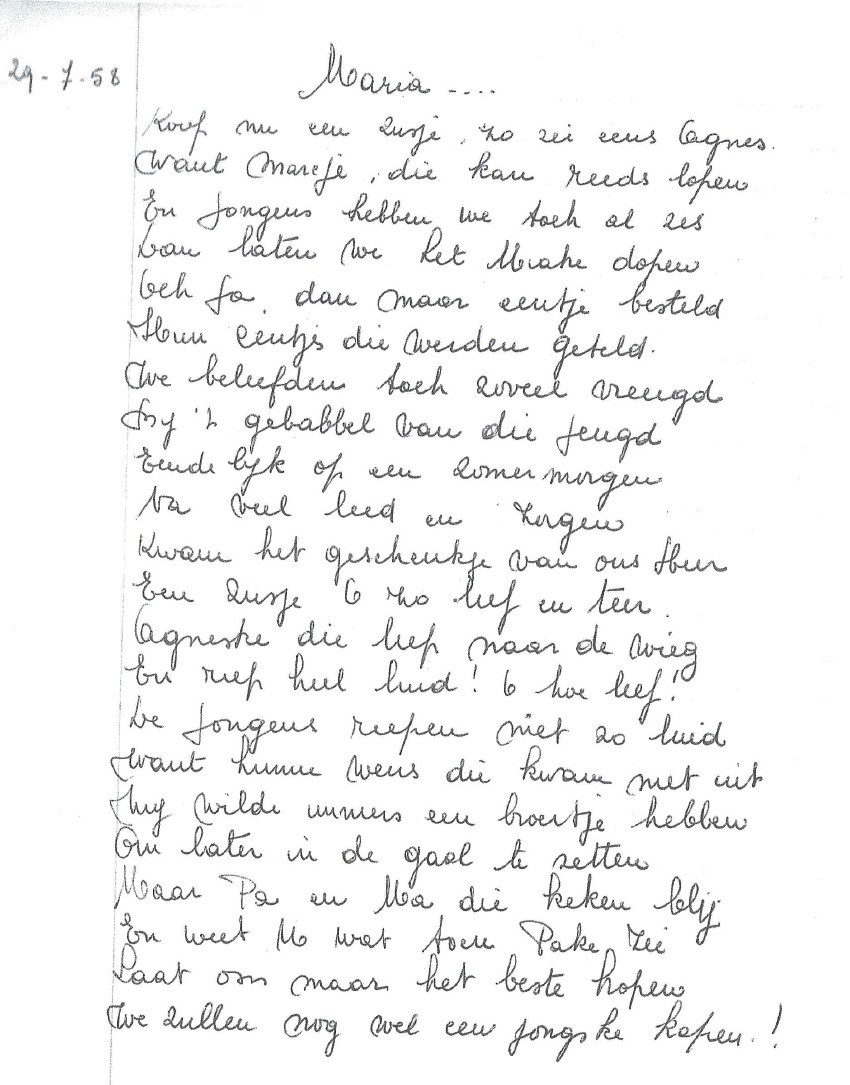 29-7-58
Maria ....
Koop nu een zusje, zo zei eens Agnes.
Want Marcje, die kan reeds lopen
En jongens hebben we toch al zes
Dan laten we het Miake dopen
Och ja, dan maar eentje besteld
Hun centjes die werden geteld.
We beleefden toch zoveel vreugd
By 't gebabbel van die jeugd
Eindelyk op een zomermorgen
Na veel leed en zorgen
Kwam het geschenkje van ons Heer
Een zusje O zo lief en teer.
Agneske die liep naar de wieg
En riep heel luid! O hoe lief!
De jongens riepen niet zo luid
Want hunne wens die kwam niet uit
Hij wilde immers een broertje hebben
Om later in de gaol te zetten
Maar Pa en Ma die keken blij
En weet U wat toen Pake zei
Laat ons maar het beste hopen
We zullen nog wel een jongske kopen.!